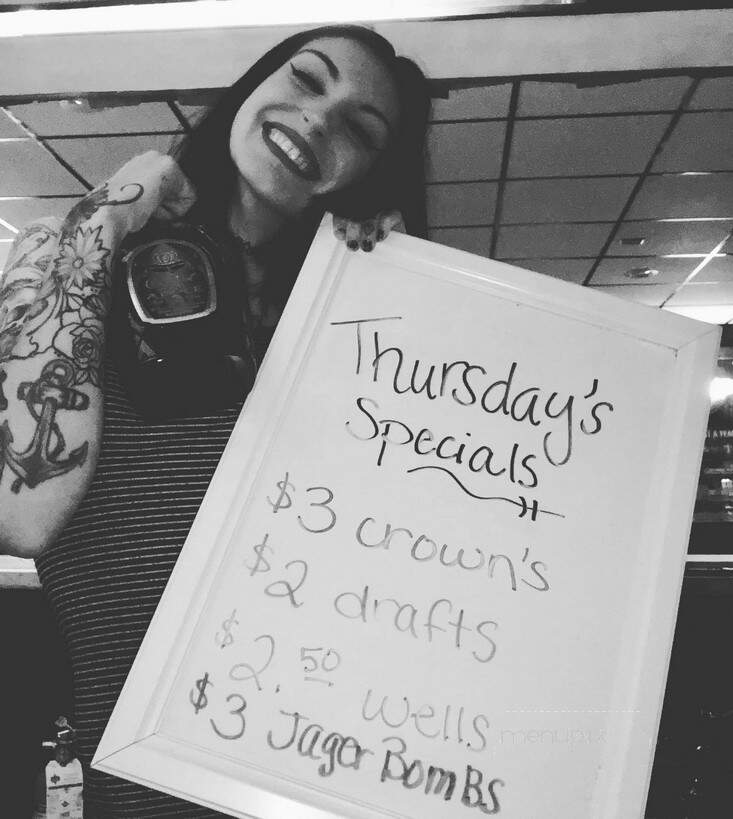 Thursday's
Specials
$3 crown's
$2 drafts
$2.50 wells
$3 Jager BomBs